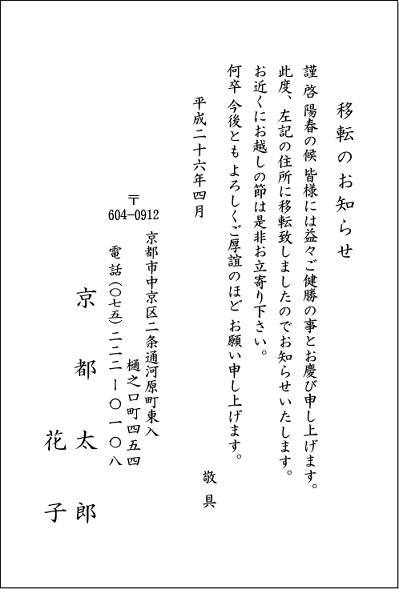 移転のお知らせ
謹啓 陽春の候 皆様には益々ご健勝の事とお慶び申し上げます。
此度、左記の住所に移転致しましたのでお知らせいたします。
お近くにお越しの節は是非お立寄り下さい。
何卒 今後とも よろしくご厚誼のほど お願い申し上げます。
敬具
平成二十六年四月
〒
604-0912
京都市中京区二条通河原町東入
樋之口町四五四
電話(〇七五)二二二ー〇一〇八
京都太郎
花子